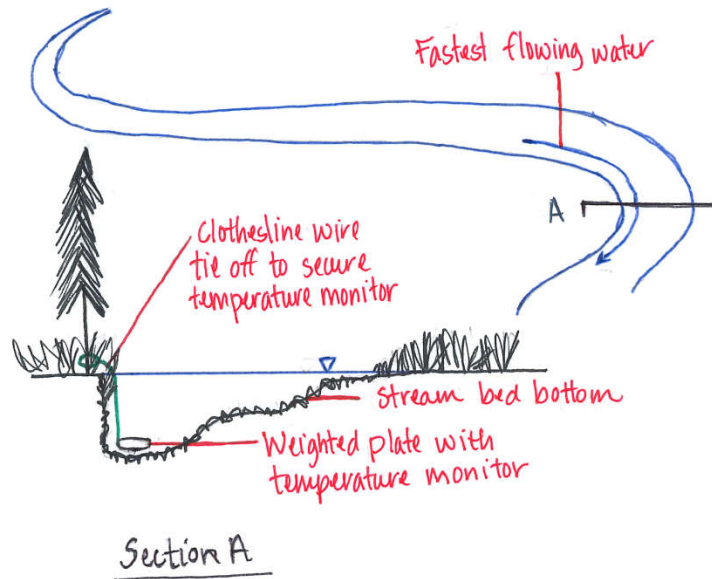 Fastest flowing water
A
Clothesline wire
tie off to secure
temperature monitor
Stream bed bottom
Weighted plate with
temperature monitor
Section A